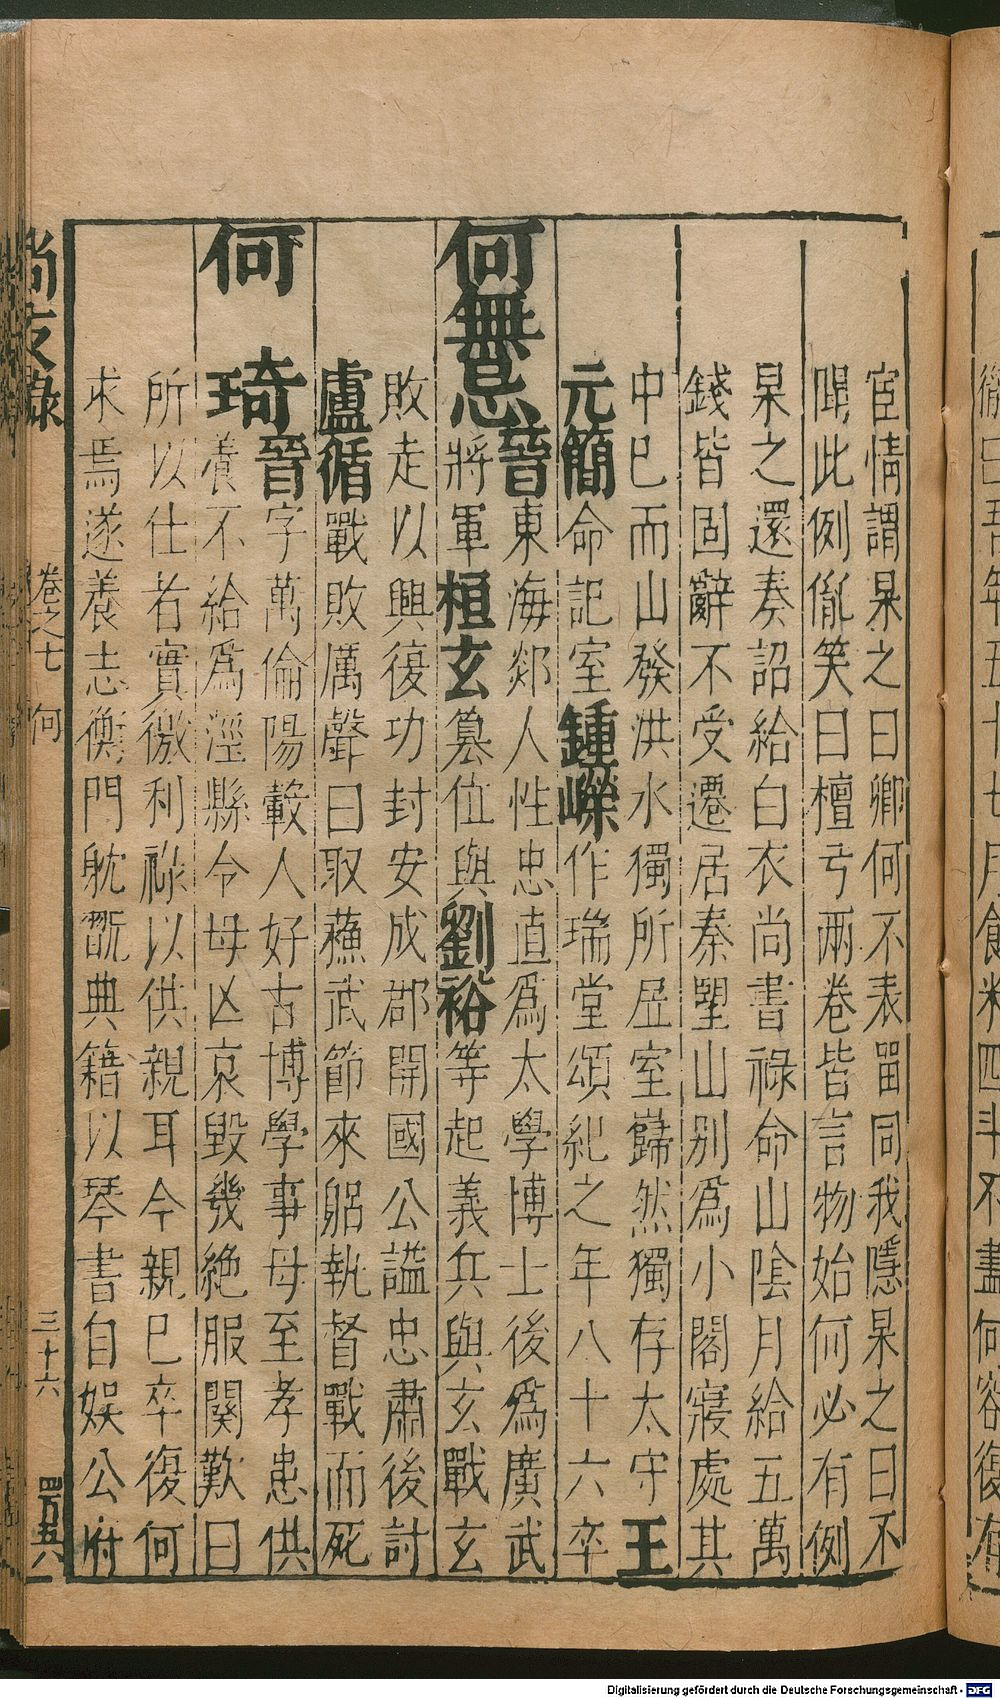 宦情謂杲之曰卿何不表畱同我隱杲之曰不
聞此例胤笑曰檀弓兩卷皆言物始何必有例
杲之還奏詔給白衣尚書祿命山陰月給五萬
錢皆固辭不受遷居秦望山别爲小閣寢處其
中巳而山發洪水獨所居室巋然獨存太守王
元簡命記室鍾嶸作瑞堂頌紀之年八十六卒
何無忌晉東海郯人性忠直爲太學博士後爲廣武
將軍桓玄篡位與劉裕等起義兵與玄戰玄
敗走以興復功封安成郡開國公謚忠肅後討
盧循戰敗厲聲曰取蘇武節來躬執督戰而死
何琦晉字萬倫陽轂人好古博學事母至孝患供
養不給爲涇縣令母凶哀毀幾絶服闋歎曰
所以仕者實微利祿以供親耳今親巳卒復何
求焉遂養志衡門躭翫典籍以琴書自娱公府
尚友錄
卷之七 何
三十六
徹曰吾年五十七月食米四斗不盡何容復有
Digitalisierung gefördert durch die Deutsche Forschungsgemeinschaft - DFG